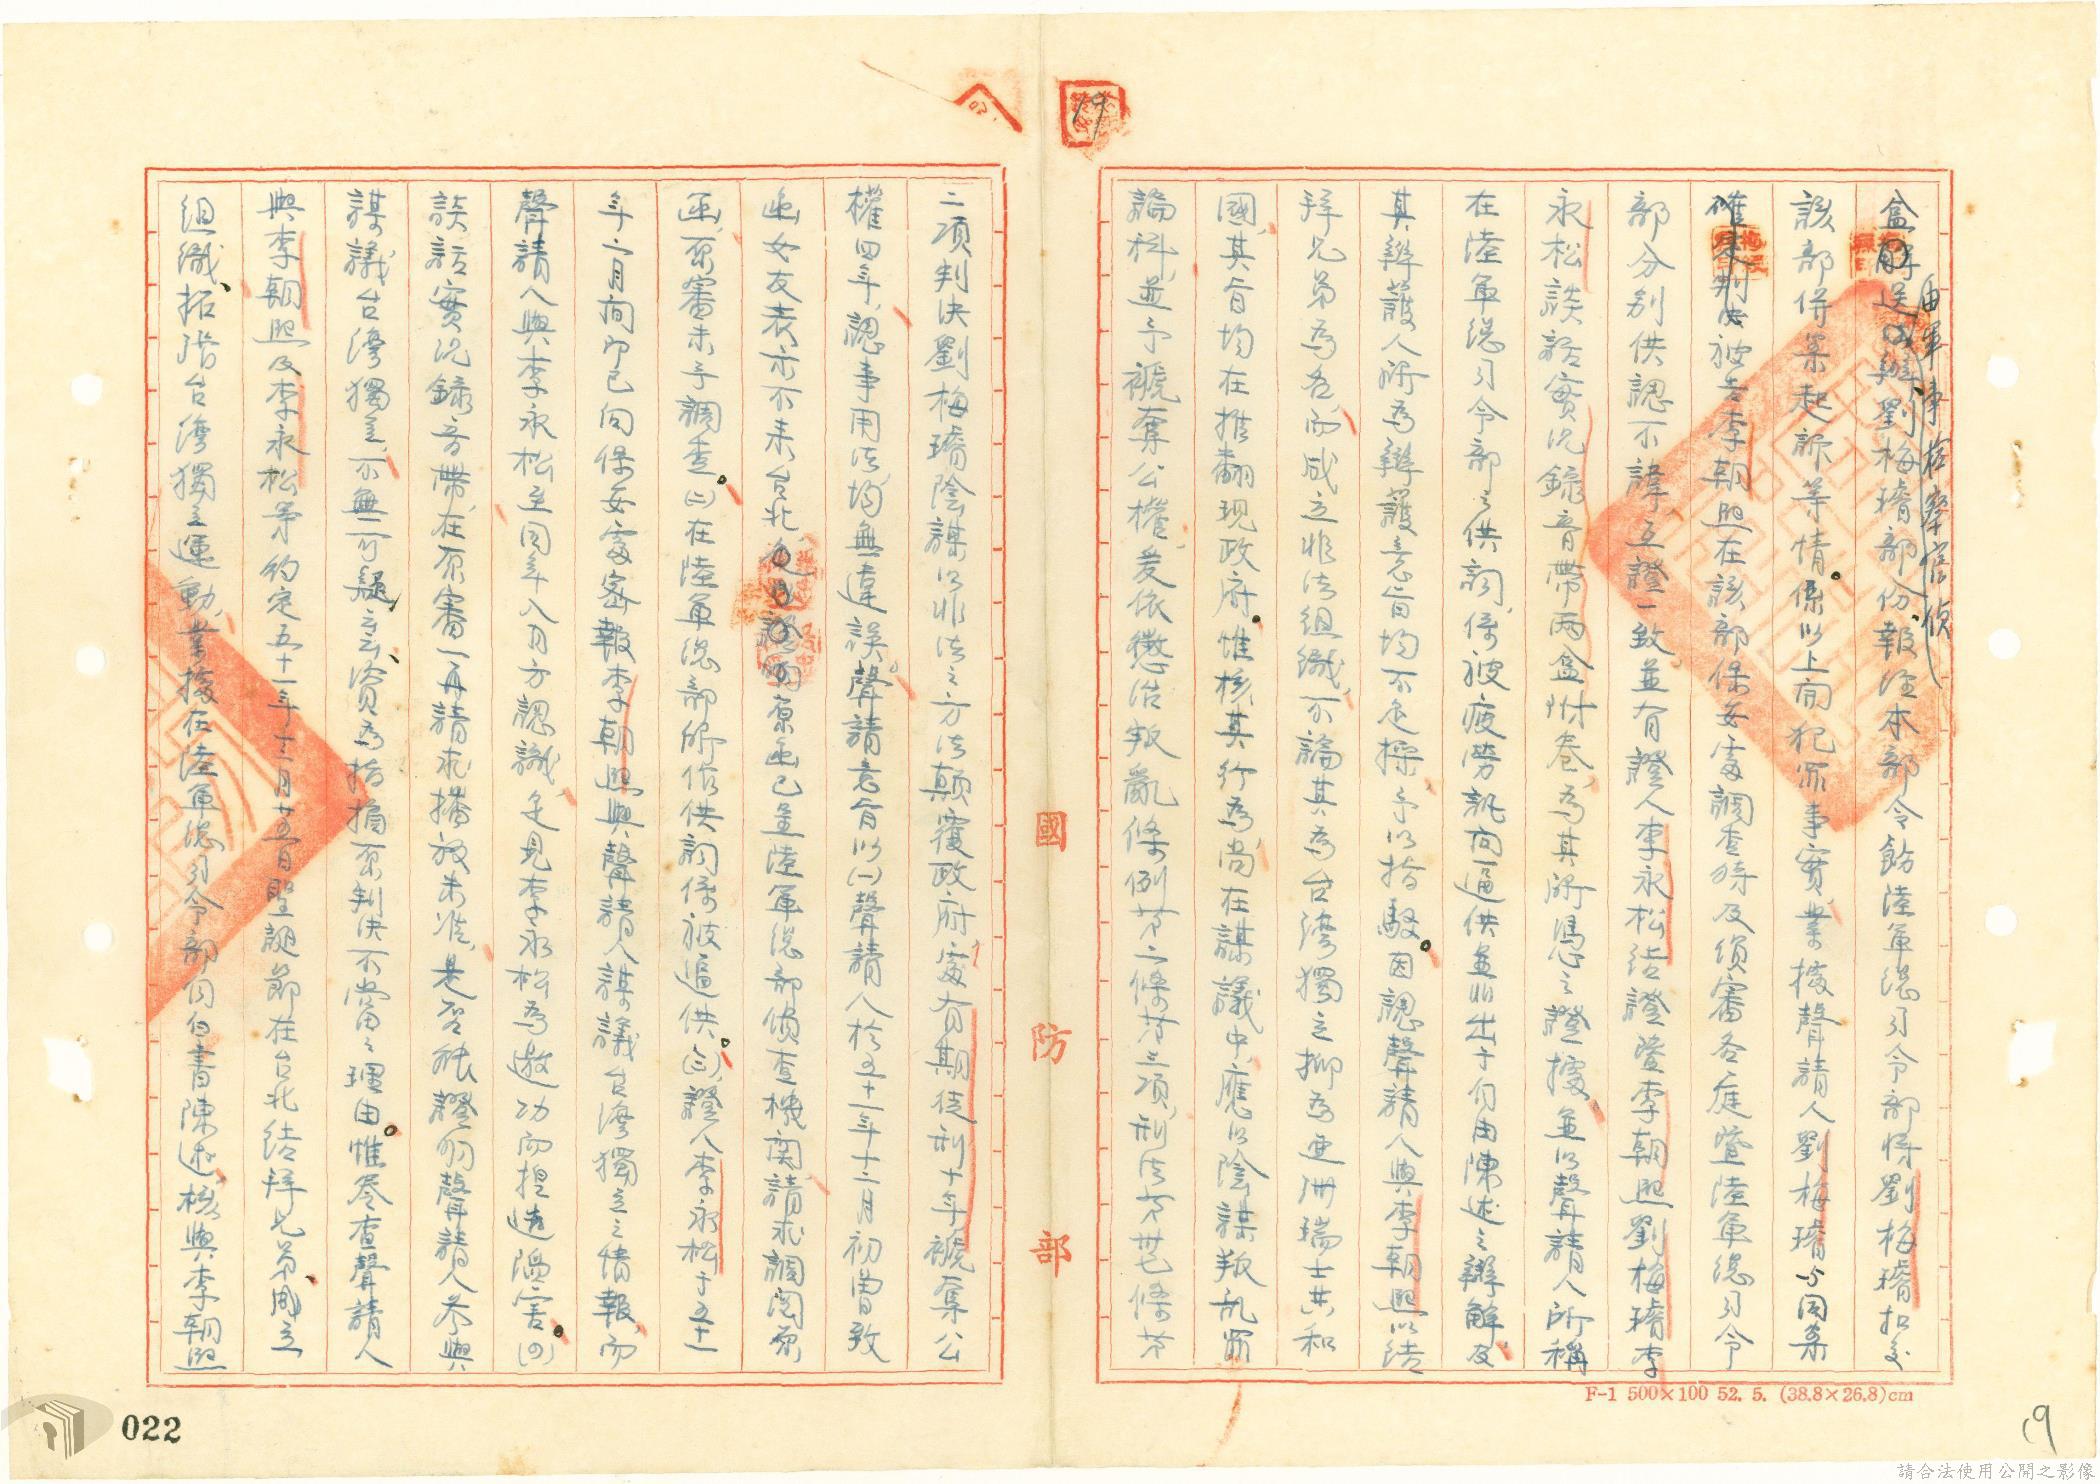 19
盒解送劉梅璿部份報經本部令飭陸軍總司令部將劉梅璿扣交
由軍事檢察官偵
該部併案起訴等情。係以上開犯罪事實業據聲請人劉梅璿與同案
被告李朝熙在該部保安處調查時及偵審各庭暨陸軍總司令
部分別供認不諱互證一致並有證人李永松結證暨李朝熙劉梅璿李
永松談話實況錄音帶兩盒附卷為其所憑之證據並以聲請人所稱
在陸軍總司令部之供詞係被疲勞訊問逼供並非出于自由陳述之辯解及
其辯護人所為辯護意旨均不足採予以指駁。因認聲請人與李朝熙以結
拜兄弟為名而成立非法組織不論其為台灣獨立抑為亞洲瑞士共和
國其旨均在推翻現政府。惟核其行為尚在謀議中應以陰謀叛亂罪
論科並予褫奪公權爰依懲治叛亂條例第二條第三項刑法第卅七條第
二項判決劉梅璿陰謀以非法之方法顛覆政府處有期徒刑十年褫奪公
權四年認事用法均無違誤。聲請意旨以(一)聲請人於五十一年十二月初曾致
函女友表示不來台北原函已呈陸軍總部偵查機關請求調閱原
函原審未予調查。(二)在陸軍總部所作供詞係被逼供。(三)證人李永松于五十一
年六月間即已向保安處密報李朝熙與聲請人謀議台灣獨立之情報而
聲請人與李永松至同年八月方認識足見李永松為邀功而捏造陷害。(四)
談話實況錄音帶在原審一再請求播放未准是否能證明聲請人參與
謀議台灣獨立不無可疑云云資為指摘原判決不當之理由。惟卷查聲請人
與李朝熙及李永松等約定五十一年十二月廿五日聖誕節在台北結拜兄弟成立
組織、拓階台灣獨立運動業據在陸軍總司令部自白書陳述核與李朝熙
國防部
F-1 500×100 52. 5. (38.8×26.8)cm
022
19
請合法使用公開之影像